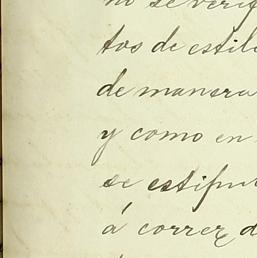 no se verif
tos de estil
de manera
y como en
se estipu
á correr d